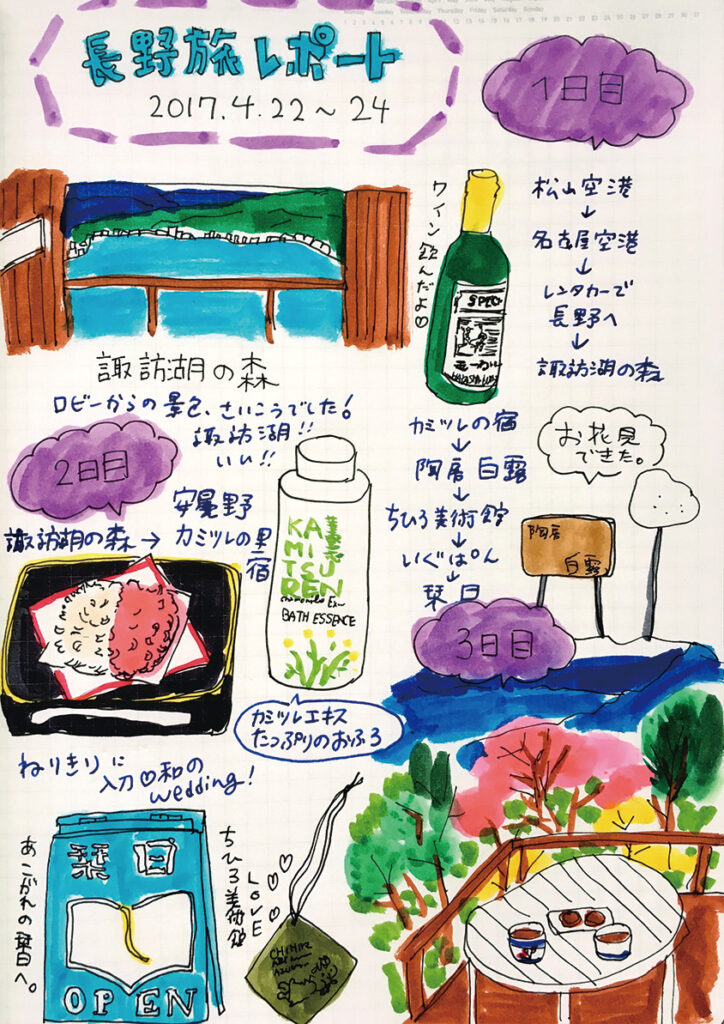 長野旅レポート
2017.4.22～24
1日目
松山空港
↓
名古屋空港
↓
レンタカーで
長野へ
↓
諏訪湖の森
ワイン飲んだよ♡
SPECI
諏訪湖の森
ロビーからの景色、さいこうでした！
諏訪湖!!
いい!!
2日目
安曇野
諏訪湖の森 → カミツレの里
宿
KA
MI
TSU
REN
BATH ESSENCE
カミツレエキス
たっぷりのおふろ
カミツレの宿
↓
陶房 白露
↓
ちひろ美術館
↓
いぐぱん
↓
栞日
お花見
できた。
陶房
白露
3日目
ねりきりに
入刀♡和の
wedding!
栞日
OPEN
あこがれの栞日へ。
ちひろ美術館
LOVE
CHIHIRO